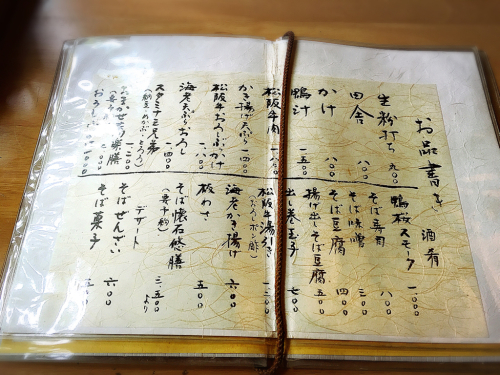 お品書き
生粉打ち 九〇〇
田舎 八〇〇
かけ 八〇〇
鴨汁 一、五〇〇
松阪牛肉 一、八〇〇
かき揚げ天ぷら
松阪牛おろしぶっかけ 一、八〇〇
海老天ぷらおろし 一、四〇〇
スタミナ三兄弟
(納豆・めかぶ・とろろ) 一、二〇〇
おまかせそば楽膳
酒肴
鴨桜スモーク 一、〇〇〇
そば寿司 八〇〇
そば味噌 四〇〇
揚げ出しそば豆腐 五〇〇
出し巻玉子 七〇〇
松阪牛湯引き
(おろしポン酢) 一、三〇〇
海老かき揚げ 六〇〇
板わさ 五〇〇
そば懐石悠膳
(要予約) 三、五〇〇より
デザート
そばぜんざい 六〇〇
そば菓子 五〇〇